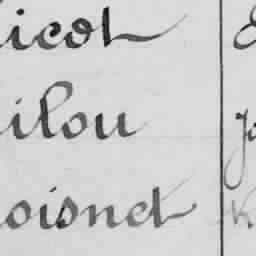 icot
ilou
oisnet